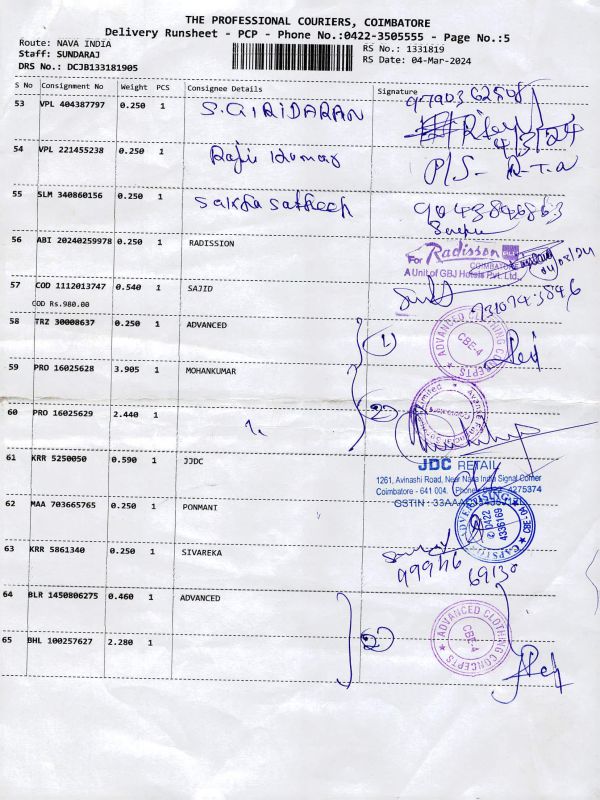 THE PROFESSIONAL COURIERS, COIMBATORE
Delivery Runsheet - PCP - Phone No.:0422-3505555 - Page No.:5
Route: NAVA INDIA
RS No.: 1331819
Staff: SUNDARAJ
RS Date: 04-Mar-2024
DRS No.: DCJB133181905
S No Consignment No Weight PCS Consignee Details Signature
53 VPL 404387797 0.250 1 S.GIRIDARAN
4/3/24
54 VPL 221455238 0.250 1 Raji Kumar P/S- R-T-A
55 SLM 340860156 0.250 1 Saktia Satheesh
56 ABI 20240259978 0.250 1 RADISSION
For Radisson
COIMBATORE
A Unit of GBJ Hotels Pvt. Ltd.
57 COD 1112013747 0.540 1 SAJID
COD Rs.980.00
58 TRZ 30008637 0.250 1 ADVANCED 1)
ADVANCED CLOTHING CONCEPTS
CBE-4
59 PRO 16025628 3.905 1 MOHANKUMAR
60 PRO 16025629 2.440 1 2
61 KRR 5250050 0.590 1 JJDC
JDC RETAIL
1261, Avinashi Road, Near Nava India Signal Corner
Coimbatore - 641 004. Phone: 0422 - 4275374
GSTIN : 33AAA
62 MAA 703665765 0.250 1 PONMANI
0422
4336169
CBE-04
63 KRR 5861340 0.250 1 SIVAREKA
99946 69130
64 BLR 1450806275 0.460 1 ADVANCED
ADVANCED CLOTHING CONCEPTS
CBE-4
65 BHL 100257627 2.280 1 2